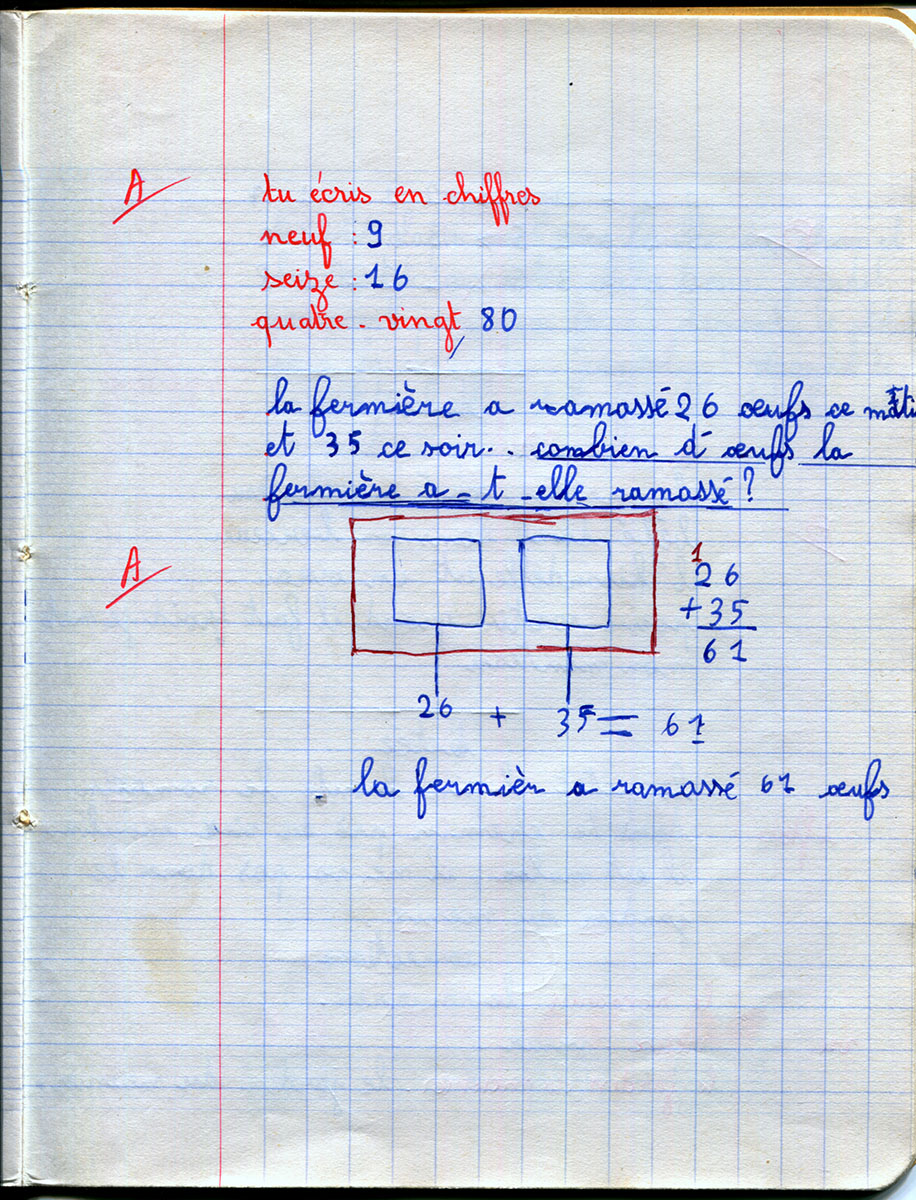 A
tu écris en chiffres
neuf : 9
seize : 16
quatre - vingt 80
la fermière a ramassé 26 œufs ce mati
et 35 ce soir.. combien d'œufs la
fermière a - t - elle ramassé ?
A
1
26
+35
61
26 + 35 = 61
la fermièr a ramassé 61 œufs